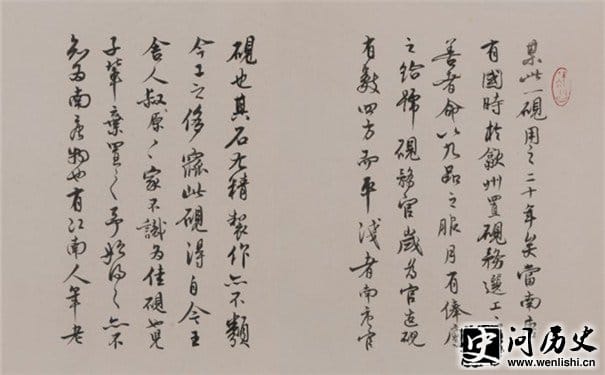 某此一硯用之二十年矣當南唐
有國時於歙州置硯務選工
善者命以九品之服月有俸廩
之給號硯務官歲為官造硯
有數四方而平淺者南唐官
硯也其石尤精製作亦不類
今工之侈窳此硯得自今王
舍人叔原〻家不識為佳硯也兒
子輩棄置之予始得之亦不
知為南唐物也有江南人年老
问历史
www.wenlishi.com